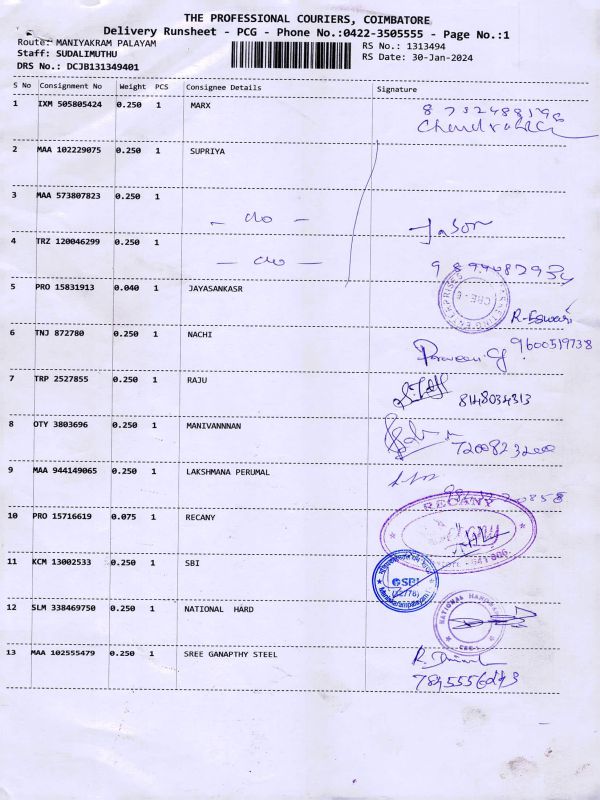 THE PROFESSIONAL COURIERS, COIMBATORE
Delivery Runsheet - PCG - Phone No.:0422-3505555 - Page No.:1
Route: MANIYAKRAM PALAYAM
Staff: SUDALIMUTHU
DRS No.: DCJB131349401
RS No.: 1313494
RS Date: 30-Jan-2024
S No Consignment No Weight PCS Consignee Details Signature
1 IXM 505805424 0.250 1 MARX
2 MAA 102229075 0.250 1 SUPRIYA
3 MAA 573807823 0.250 1
— do —
Jason
4 TRZ 120046299 0.250 1
— do —
5 PRO 15831913 0.040 1 JAYASANKASR
R-Eswari
6 TNJ 872780 0.250 1 NACHI
9600519738
7 TRP 2527855 0.250 1 RAJU
8148034313
8 OTY 3803696 0.250 1 MANIVANNNAN
9 MAA 944149065 0.250 1 LAKSHMANA PERUMAL
10 PRO 15716619 0.075 1 RECANY
RECANY
11 KCM 13002533 0.250 1 SBI
SBI
12 SLM 338469750 0.250 1 NATIONAL HARD
13 MAA 102555479 0.250 1 SREE GANAPTHY STEEL